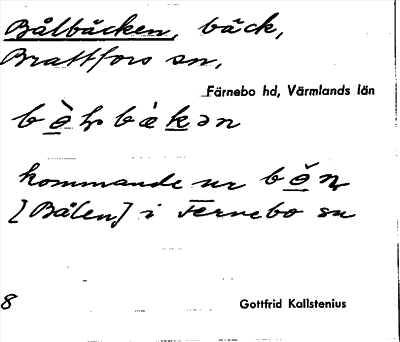 Bålbäcken, bäck,
Brattfors sn,
Färnebo hd, Värmlands län
kommande ur
[Bålen] i Fernebo sn
8
Gottfrid Kallstenius